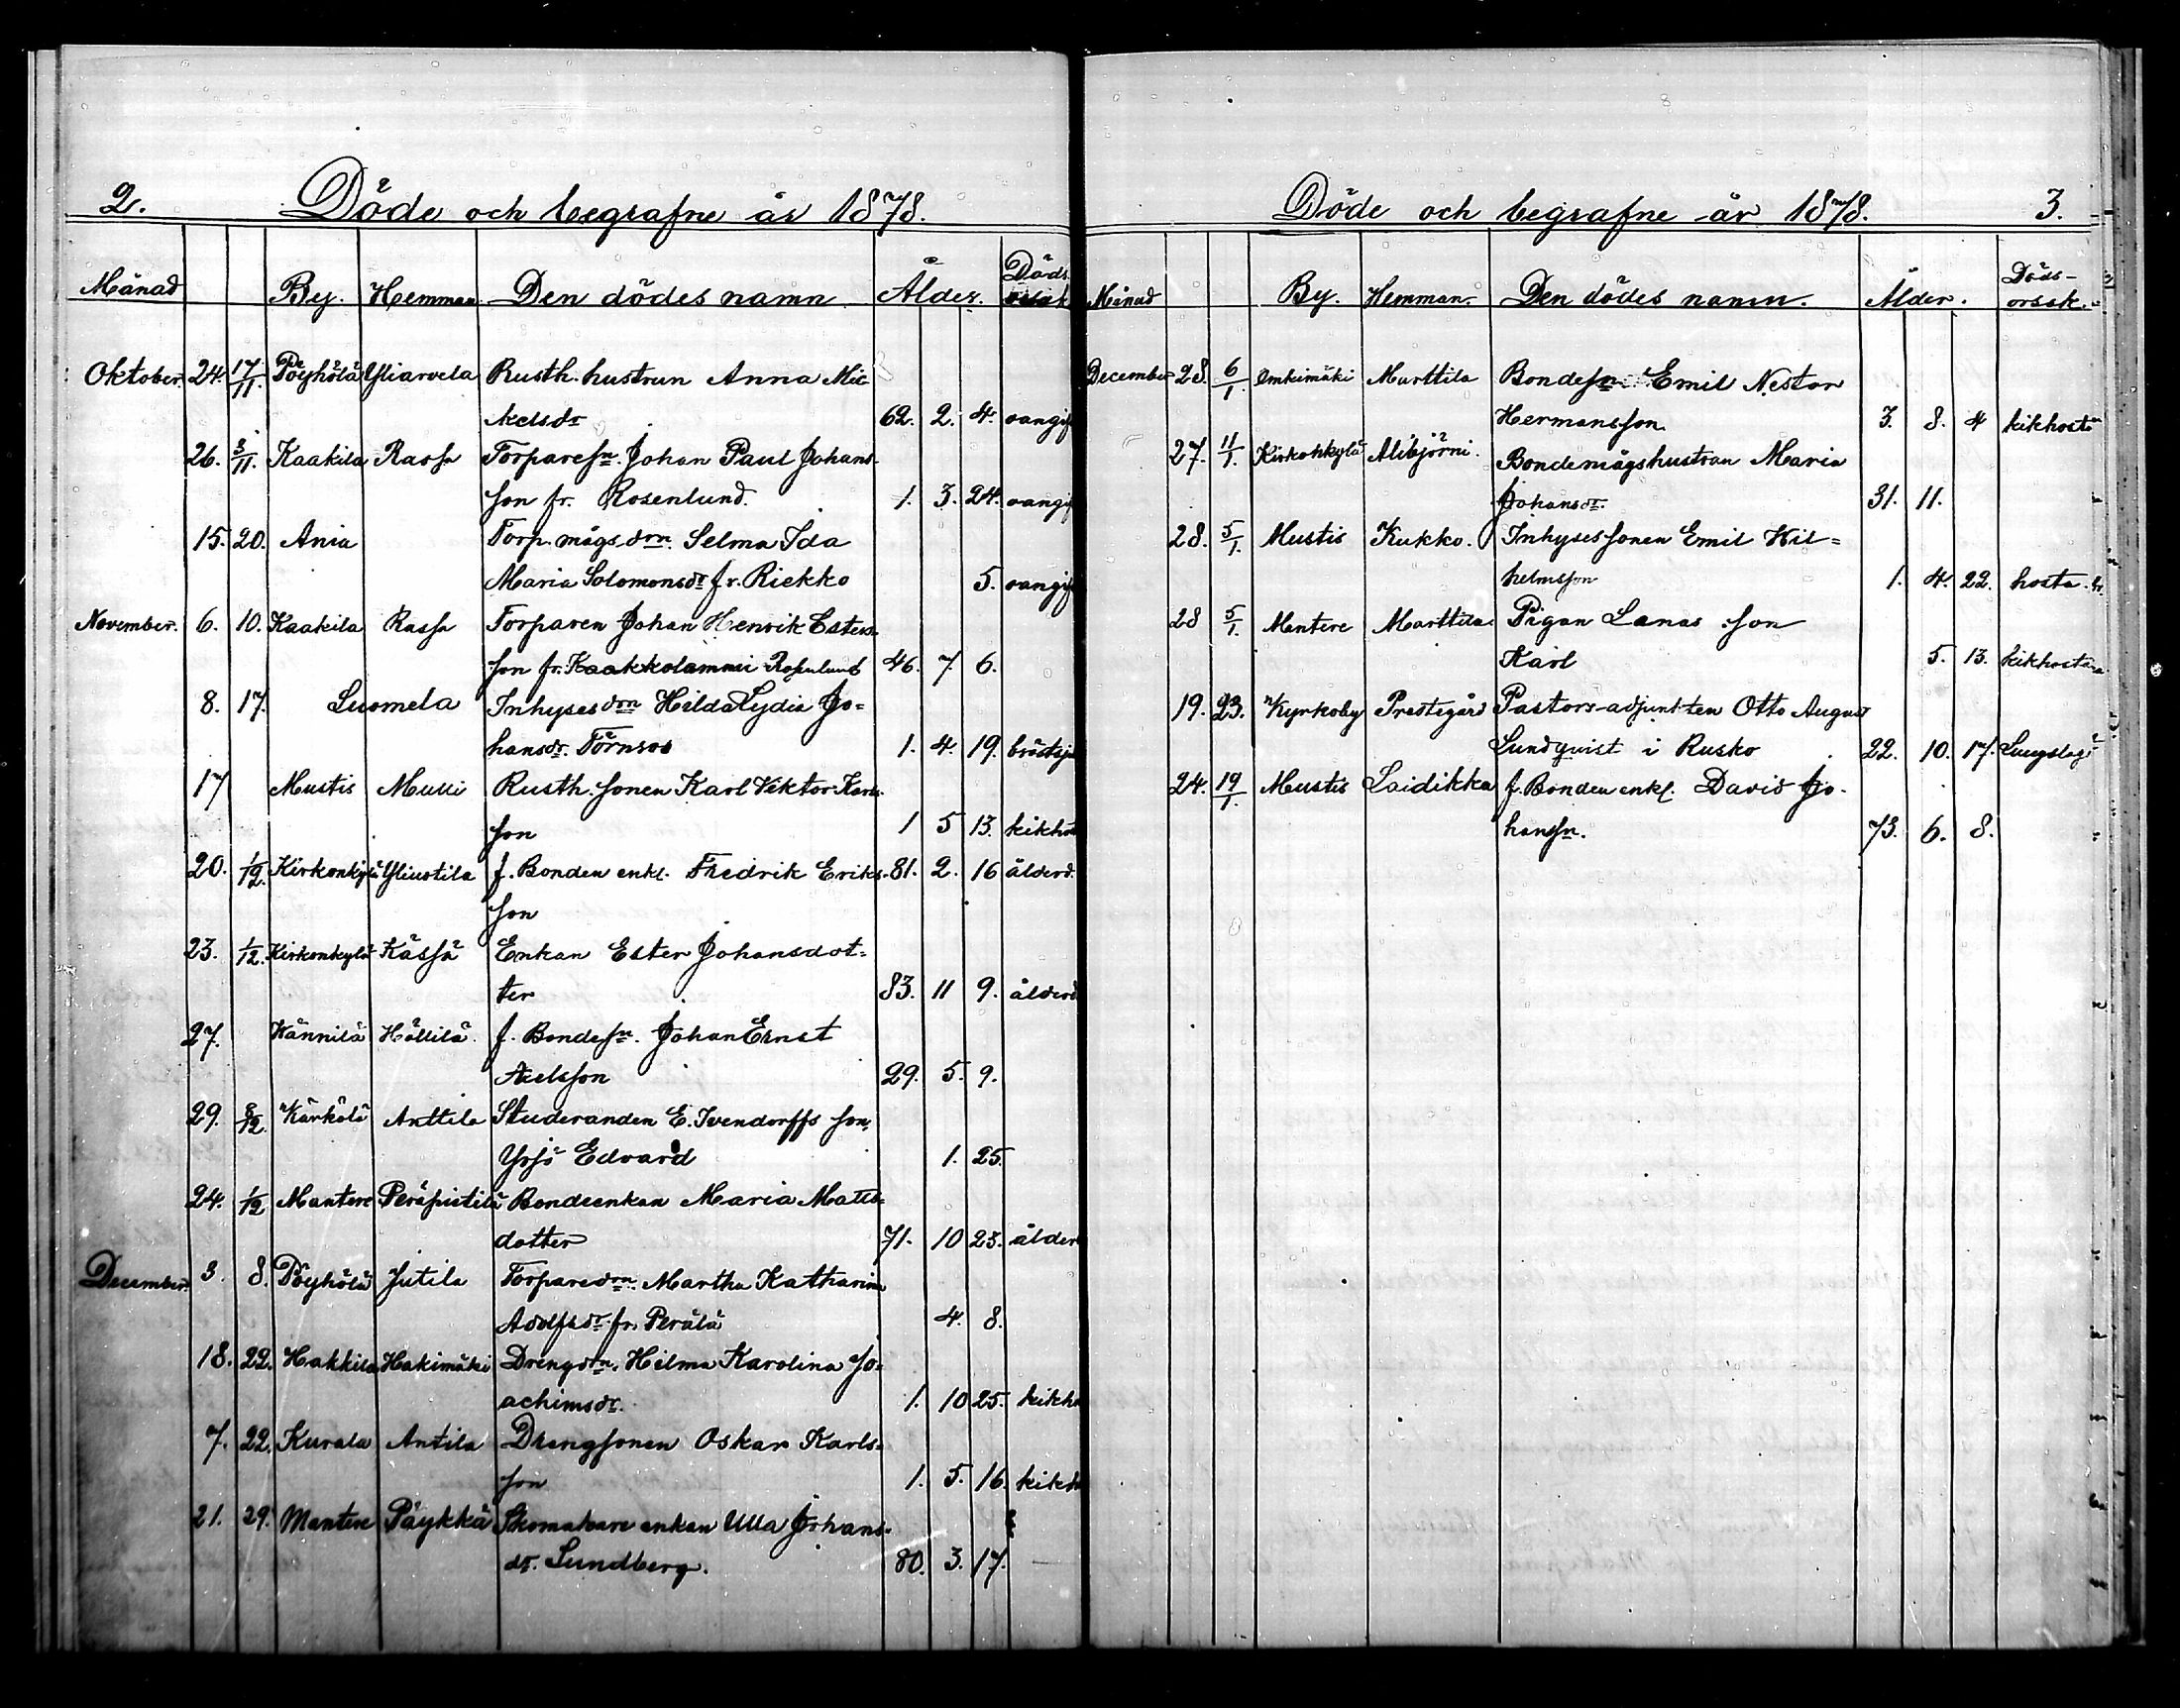 2. Döde och begrafne år 1878.
Månad By. Hemman. Den dödes namn Ålder. Döds
orsak
Oktober. 24. 17/11. Pöyhölä Yliarvela Rusth. hustrun Anna Mic
kelsdr 62. 2. 4. oangif
26. 3/11. Kaakila Rassa Torparesn. Johan Paul Johans-
son fr. Rosenlund. 1. 3. 24. oangif
15. 20. Ania Torp. mågs drn. Selma Ida
Maria Solomonsdr fr. Riekko 5. oangif
November. 6. 10. Kaakila Rassa Torparen Johan Henrik Esters
son fr. Kaakkolammi Rosenlund 46. 7 6.
8. 17. Luomela Inhyses drn Hilda Lydia Jo=
hansdr. Törnroos 1. 4. 19. bröstsju
17 Mustis Mulli Rusth. sonen Karl Viktor Karls-
son 1 5 13. kikhos
20. 1/12. Kirkonkylä Yliustila f. Bonden enkl. Fredrik Eriks- 81. 2. 16 ålderd.
son
23. 1/12. Kirkonkylä Kässä Enkan Ester Johansdot=
ter 83. 11 9. ålderd
27. Kännilä Höllilä. f. Bondesn. Johan Ernst
Axelsson 29. 5. 9.
29. 8/12. Kärkölä Anttila Studeranden E. Ivendorffs son,
Yrjö Edvard 1. 25.
24. 1/12 Mantere Peräpietilä Bondeenkan Maria Matts=
dotter 71. 10 23. ålder
December. 3. 8. Pöyhölä Jutila Torparedrn. Martha Katharina
Adolfsdr. fr. Perälä 4. 8.
18. 22. Hakkila Hakimäki Drengdrn. Hilma Karolina Jo=
achimsdr. 1. 10 25. kikho
7. 22. Kurala Antila Drengsonen Oskar Karls=
son 1. 5. 16. kikho
21. 29. Mantere Päykkä Skomakare enkan Ulla Johans-
dr. Sundberg. 80. 3. 17.
Döde och begrafne år 1878. 3.
Månad By. Hemman. Den dödes namn. Ålder. Döds-
orsak.
December 28. 6/1. Marttila Bondesn. Emil Nestor
Hermansson. 3. 8. 4 kikhosta
27. 11/1. Kirkohkylä Alibjörni. Bondemågshustrun Maria
Johansdr. 31. 11.
28. 5/1. Mustis Kukko. Inhysessonen Emil Wil=
helmsson 1. 4. 22. hosta
28 5/1. Mantere Marttila. Pigan Lanas son
Karl 5. 13. kikhosta
19. 23. Kyrkoby Prestegård Pastors-adjunkten Otto August
Lundqvist i Rusko 22. 10. 17. Lungslag
24. 19/1. Mustis Laidikka f. Bonden enkl. David Jo-
hanssn. 73. 6. 8.